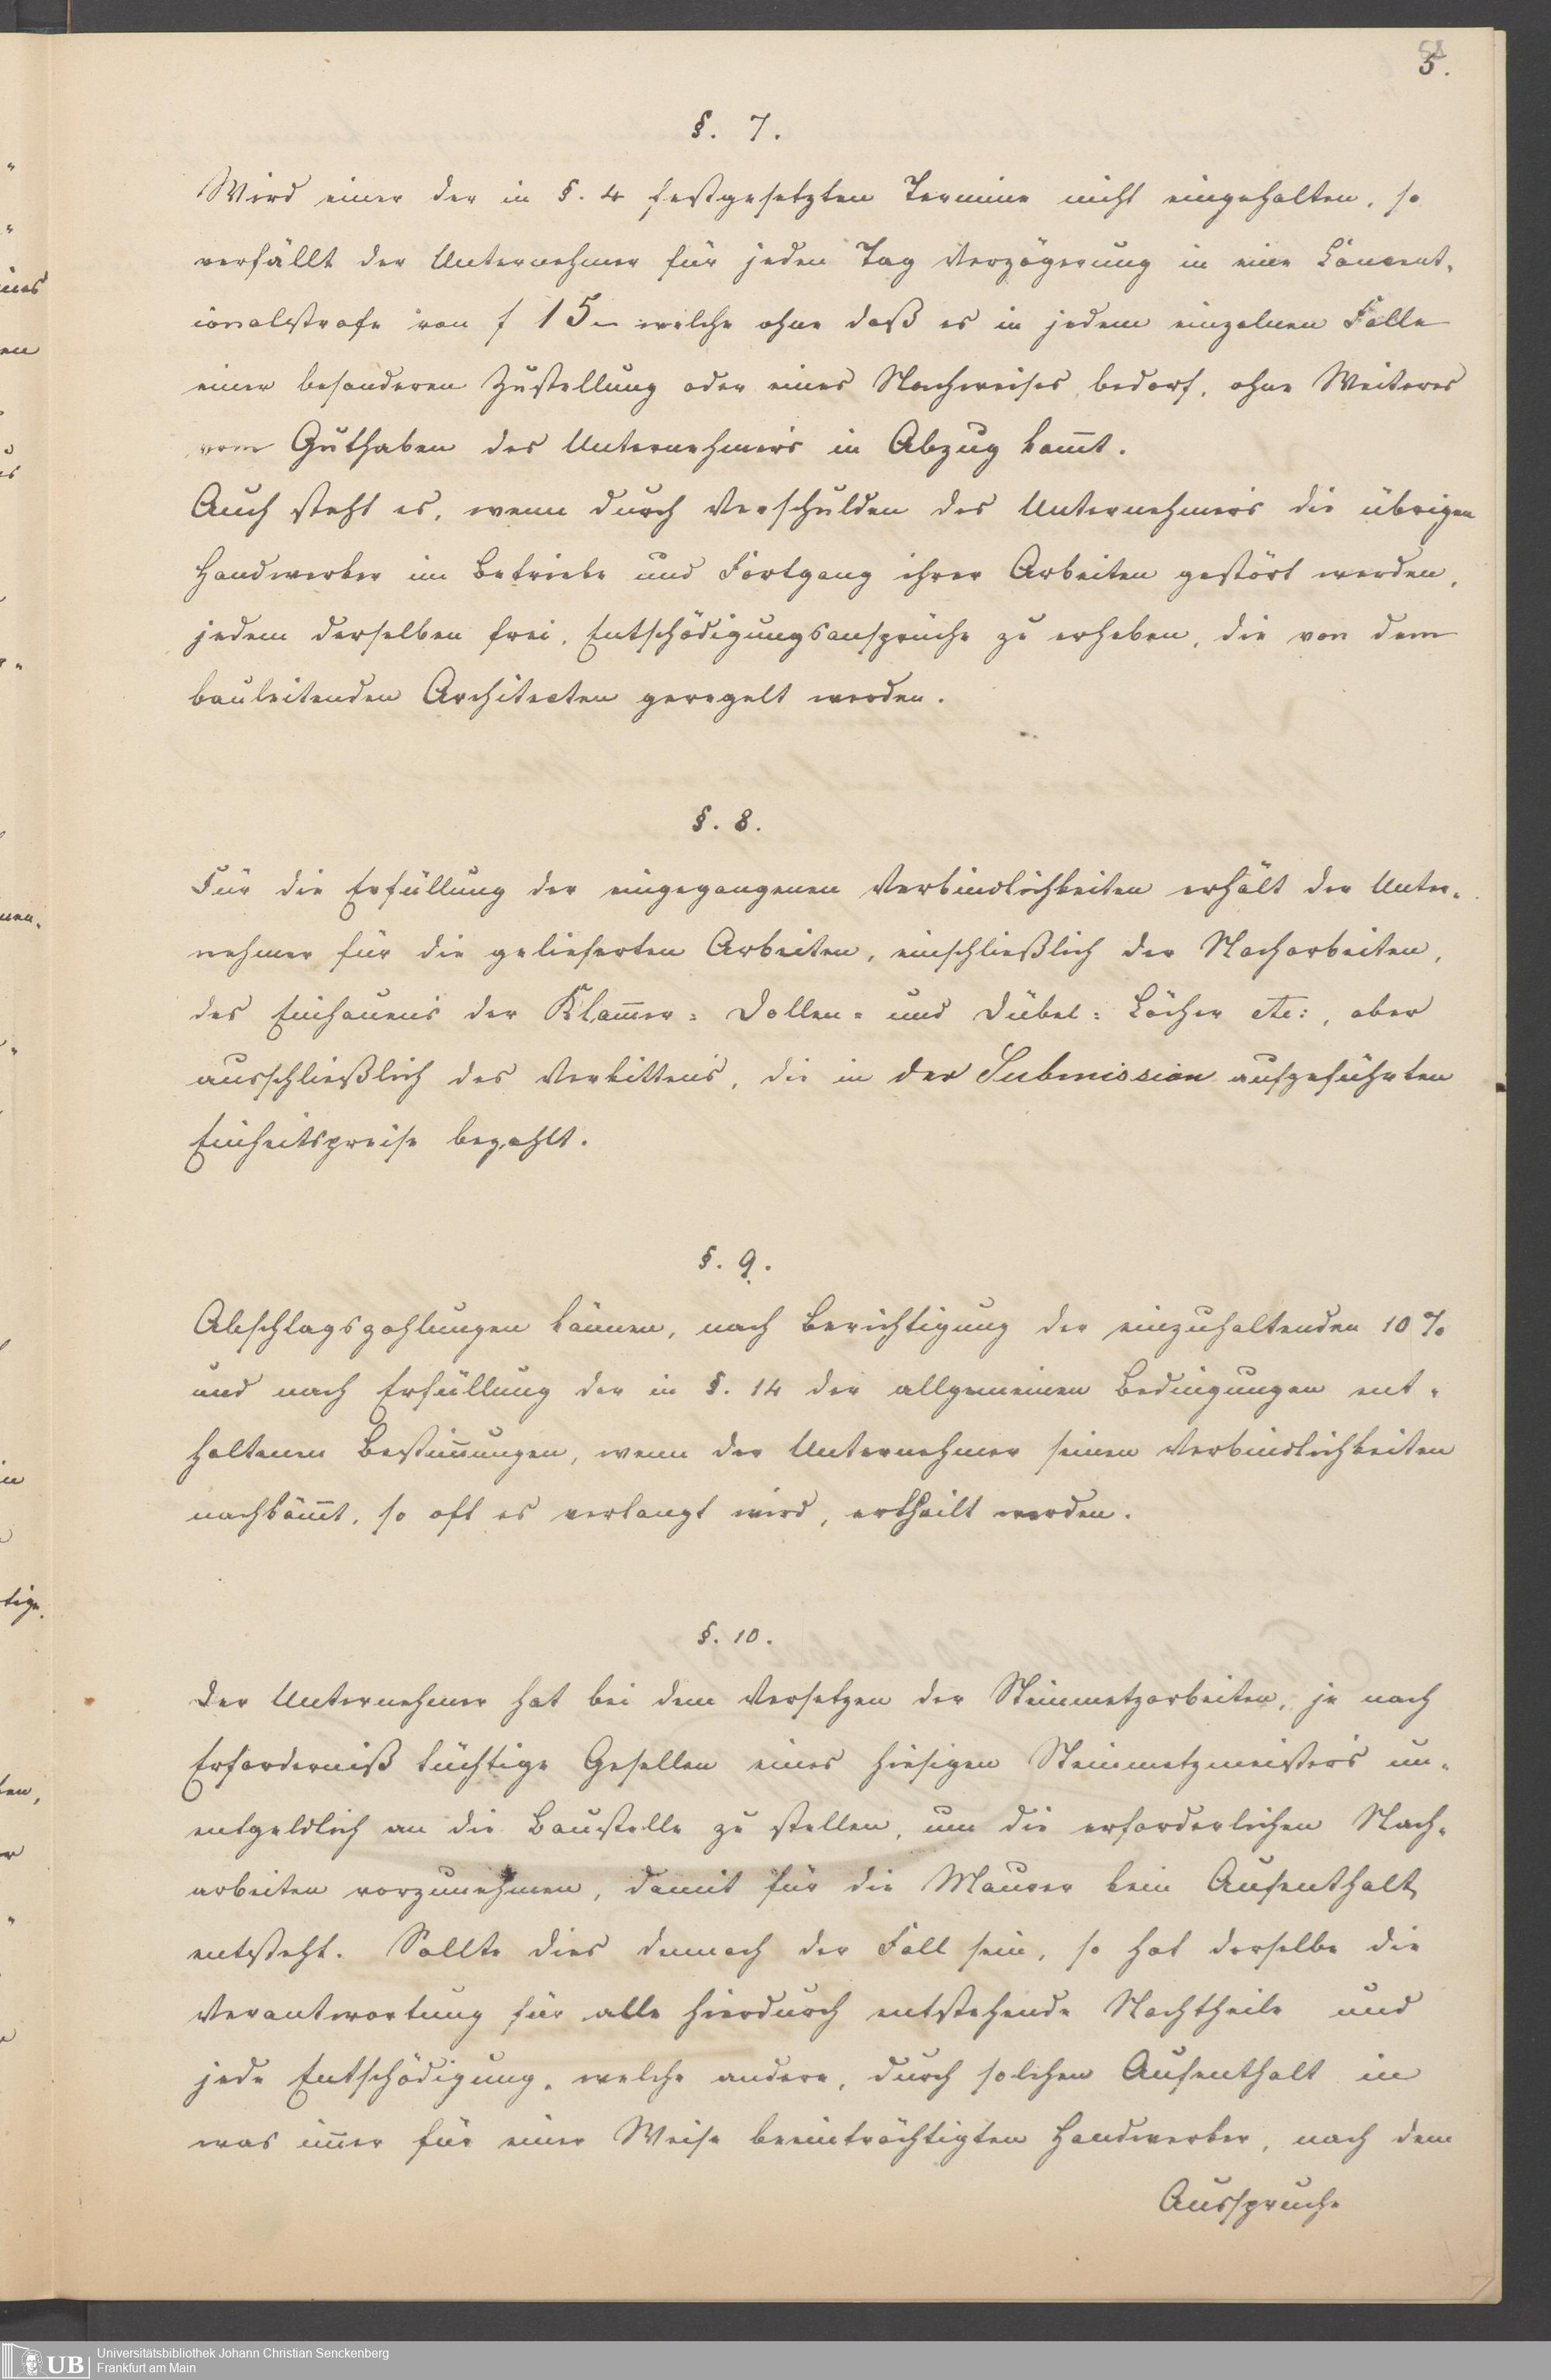 58
5.
§. 7.
Wird einer der in §. 4 festgesetzten Termine nicht eingehalten, so
verfällt der Unternehmer für jeden Tag Verzögerung in eine Convent-
ionalstrafe von f 15.— welche ohne daß es in jedem einzelnen Falle
einer besonderen Zustellung oder eines Nachweises bedarf, ohne Weiteres
vom Guthaben des Unternehmers in Abzug kom̅t.
Auch steht es, wenn durch Verschulden des Unternehmers die übrigen
Handwerker im Betriebe und Fortgang ihrer Arbeiten gestört werden,
jedem derselben frei, Entschädigungsansprüche zu erheben, die von dem
bauleitenden Architecten geregelt werden.
§. 8.
Für die Erfüllung der eingegangenen Verbindlichkeiten erhält der Unter-
nehmer für die gelieferten Arbeiten, einschließlich der Nacharbeiten,
des Einhauens der Klam̅er= Dollen= und Dübel= Löcher etc:, aber
ausschließlich des Verkittens, die in der Submission aufgeführten
Einheitspreise bezahlt.
§. 9.
Abschlagszahlungen können, nach Berichtigung der einzuhaltenden 10 %
und nach Erfüllung der in §. 14 der allgemeinen Bedingungen ent-
haltenen Bestim̅ungen, wenn der Unternehmer seinen Verbindlichkeiten
nachköm̅t, so oft es verlangt wird, ertheilt werden.
§. 10.
Der Unternehmer hat bei dem Versetzen der Steinmetzarbeiten, je nach
Erforderniß tüchtige Gesellen eines hiesigen Steinmetzmeisters un-
entgeldlich an die Baustelle zu stellen, um die erforderlichen Nach-
arbeiten vorzunehmen, damit für die Maurer kein Aufenthalt
entsteht. Sollte dies dennoch der Fall sein, so hat derselbe die
Verantwortung für alle hierdurch entstehende Nachtheile und
jede Entschädigung, welche andere, durch solchen Aufenthalt in
was im̅er für einer Weise beeinträchtigten Handwerker, nach dem
Ausspruche
UB Universitätsbibliothek Johann Christian Senckenberg
Frankfurt am Main